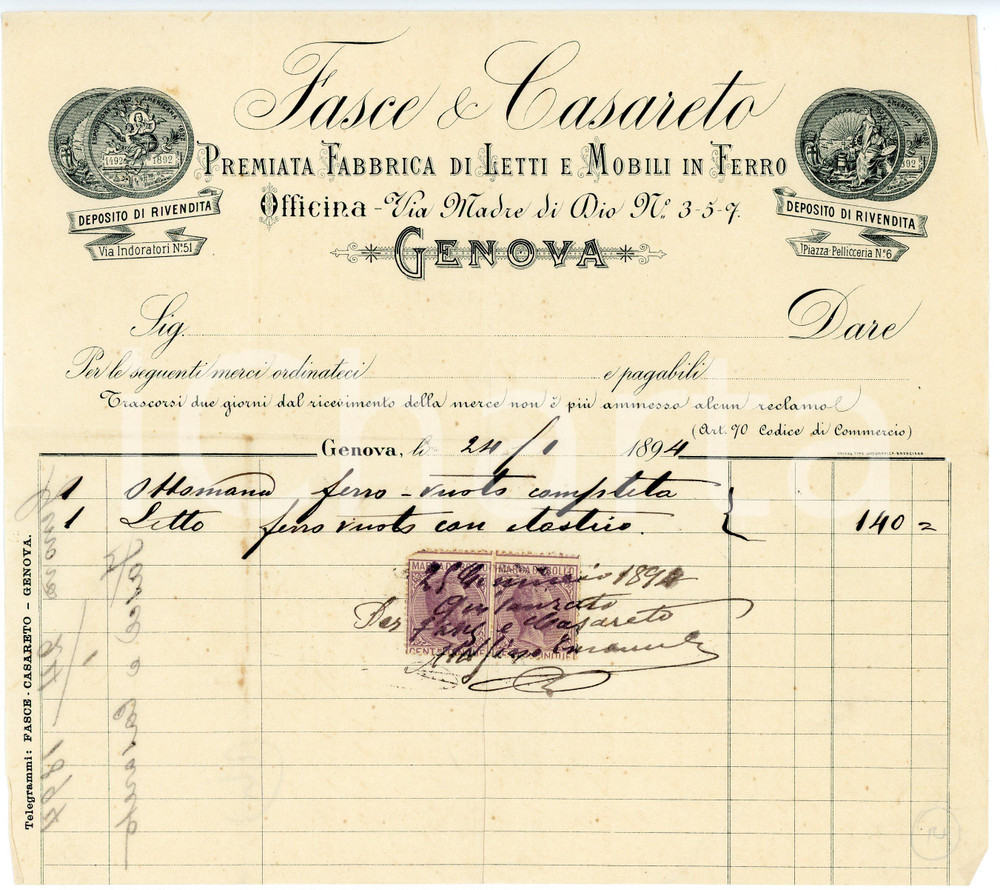 Fasce & Casareto
Premiata Fabbrica di Letti e Mobili in Ferro
Officina - Via Madre di Dio No. 3-5-7.
Genova
1492 1892
DEPOSITO DI RIVENDITA
Via Indoratori No. 51
DEPOSITO DI RIVENDITA
Piazza Pellicceria No. 6
Sig. Dare
Per le seguenti merci ordinateci e pagabili
Trascorsi due giorni dal ricevimento della merce non è più ammesso alcun reclamo
(Art. 70 Codice di Commercio)
Genova, li 24/1 1894
1 Ottomana ferro-vuoto completa
1 Letto ferro vuoto con elastico. } 140=
MARCA DA BOLLO
25 Gennaio 1894
Quitanzato
Per Fasce e Casareto
Emanuele
Telegrammi: FASCE-CASARETO - GENOVA.
Fasce e Casareto
1894
iCharta